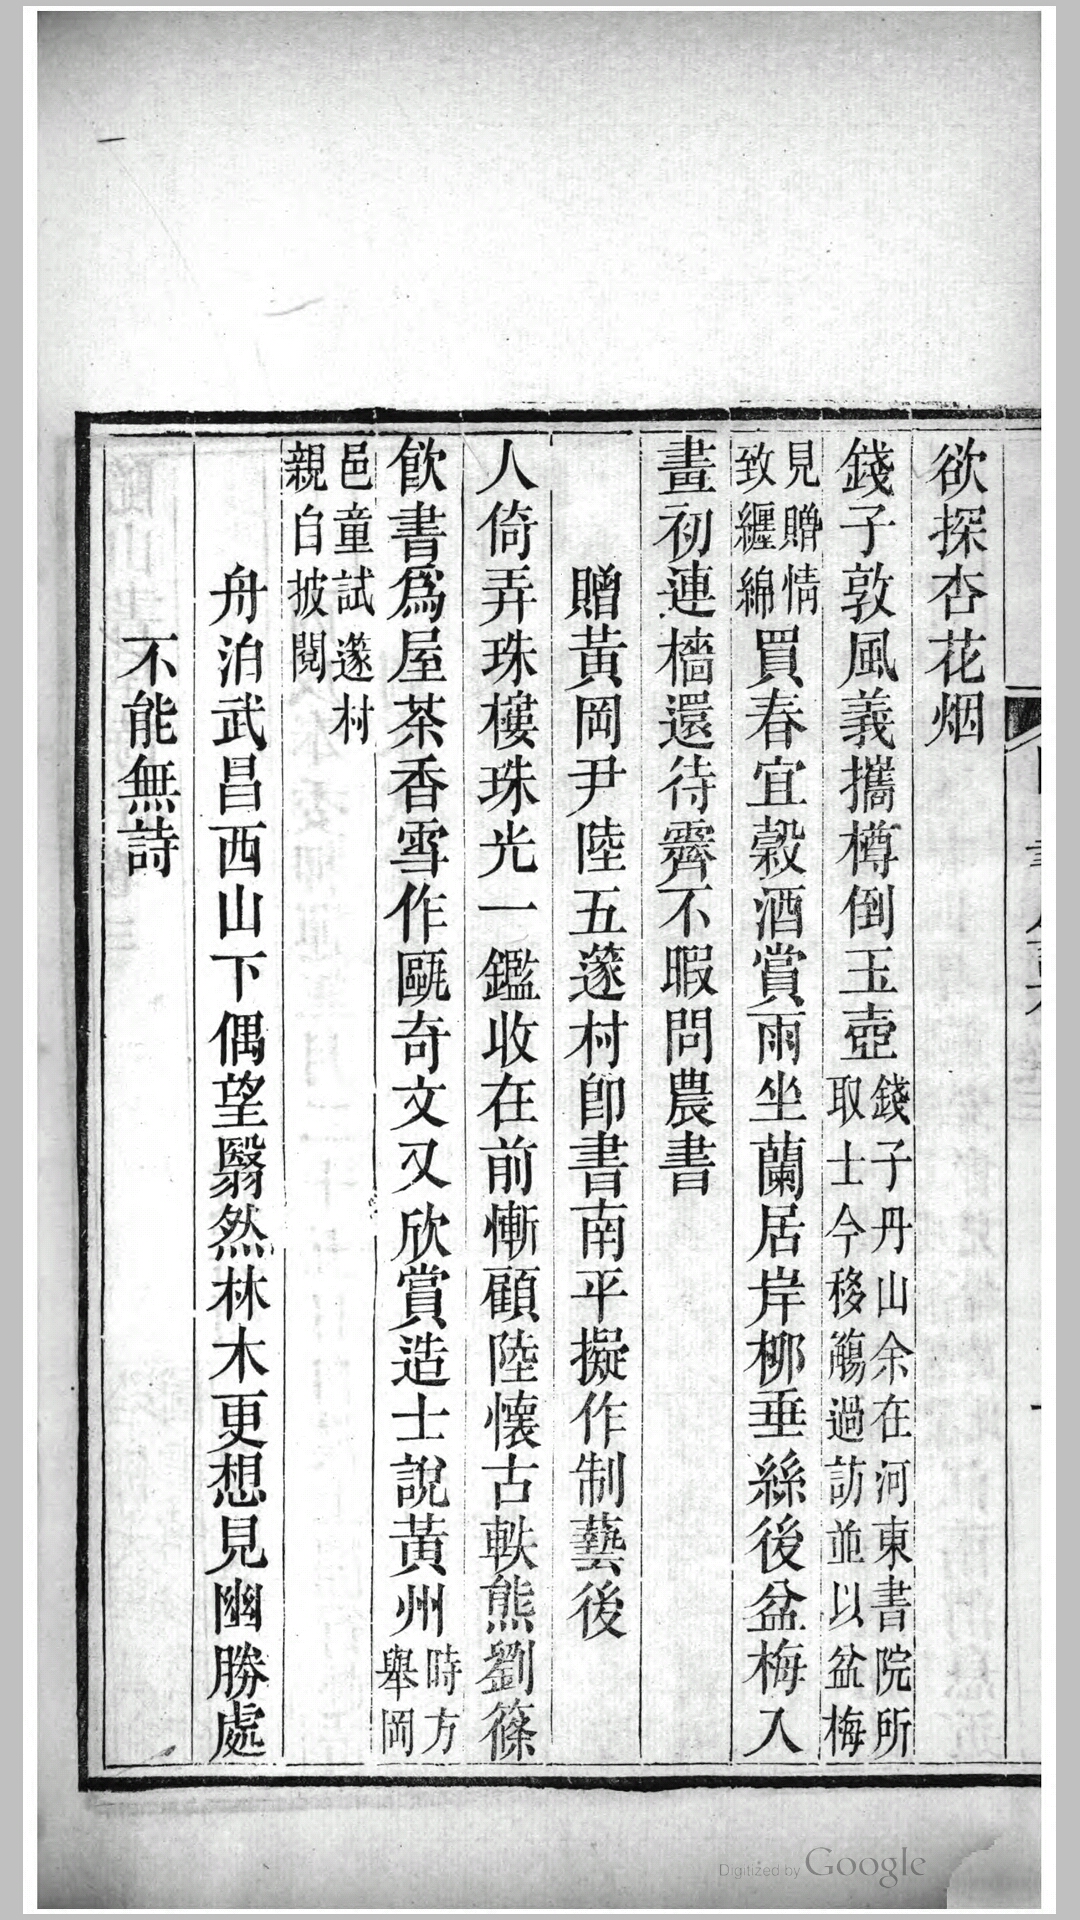 欲探杏花烟
錢子敦風義攜樽倒玉壺錢子丹山余在河東書院所取士今移觴過訪並以盆梅
見贈情致纏綿買春宜穀酒賞雨坐蘭居岸柳垂絲後盆梅入
畫初連檣還待霽不暇問農書
贈黃岡尹陸五邃村卽書南平擬作制藝後
人倚弄珠樓珠光一鑑收在前慚顧陸懷古軼熊劉篠
飲書爲屋茶香雪作甌奇文又欣賞造士說黃州時方舉岡
邑童試邃村親自披閱
舟泊武昌西山下偶望翳然林木更想見幽勝處
不能無詩
Digitized by Google